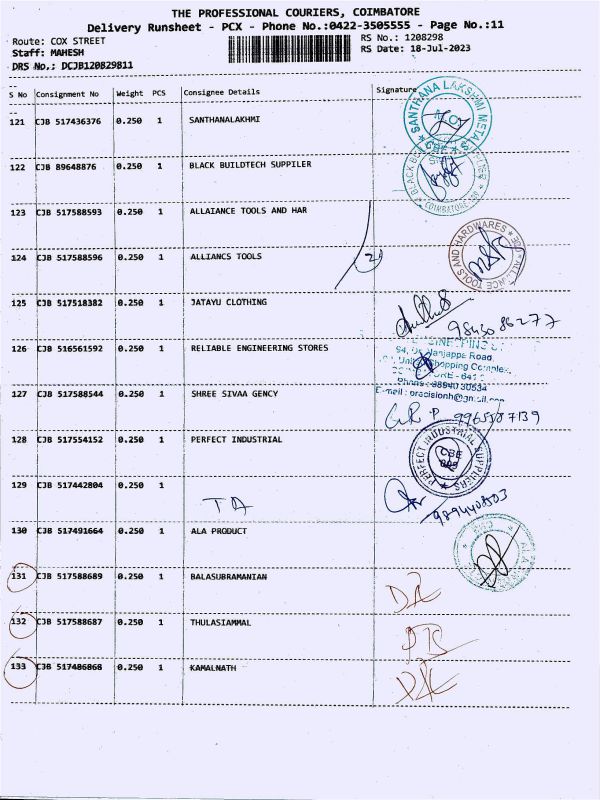 THE PROFESSIONAL COURIERS, COIMBATORE
Delivery Runsheet - PCX - Phone No.:0422-3505555 - Page No.:11
Route: COX STREET
RS No.: 1208298
Staff: MAHESH
RS Date: 18-Jul-2023
DRS No.: DCJB120829811
S No Consignment No Weight PCS Consignee Details Signature
121 CJB 517436376 0.250 1 SANTHANALAKHMI
SANTHANA LAKSHMI METALS
122 CJB 89648876 0.250 1 BLACK BUILDTECH SUPPILER
COIMBATORE
123 CJB 517588593 0.250 1 ALLAIANCE TOOLS AND HAR
124 CJB 517588596 0.250 1 ALLIANCS TOOLS
TOOLS AND HARDWARES
125 CJB 517518382 0.250 1 JATAYU CLOTHING
9843086277
126 CJB 516561592 0.250 1 RELIABLE ENGINEERING STORES
94, Dr. Nanjappa Road,
Shopping Complex,
Phone : 98940 30534
127 CJB 517588544 0.250 1 SHREE SIVAA GENCY
128 CJB 517554152 0.250 1 PERFECT INDUSTRIAL
PERFECT INDUSTRIAL SUPPLIERS
CBE
129 CJB 517442804 0.250 1
130 CJB 517491664 0.250 1 ALA PRODUCT
131 CJB 517588689 0.250 1 BALASUBRAMANIAN
132 CJB 517588687 0.250 1 THULASIAMMAL
133 CJB 517486868 0.250 1 KAMALNATH